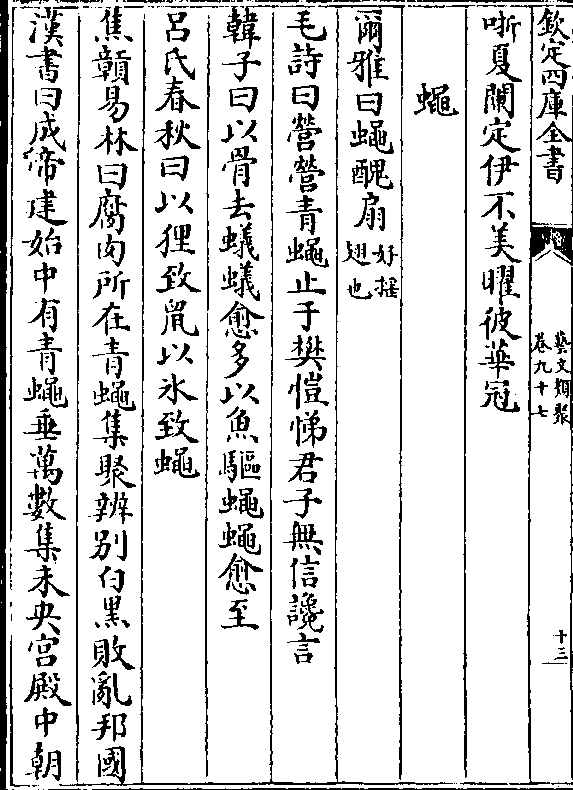 欽定四庫全書
藝文類聚
卷九十七
十三
哳夏闌定伊不美曜彼華冠
蠅
爾雅曰蠅醜扇好搖翅也
毛詩曰營營青蠅止于樊愷悌君子無信讒言
韓子曰以骨去蟻蟻愈多以魚驅蠅蠅愈至
呂氏春秋曰以狸致鼠以氷致蠅
焦贛易林曰腐肉所在青蠅集聚辨别白黑敗亂邦國
漢書曰成帝建始中有青蠅垂萬數集未央宫殿中朝